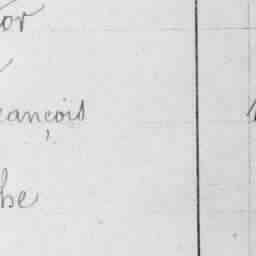 or
eançois
he